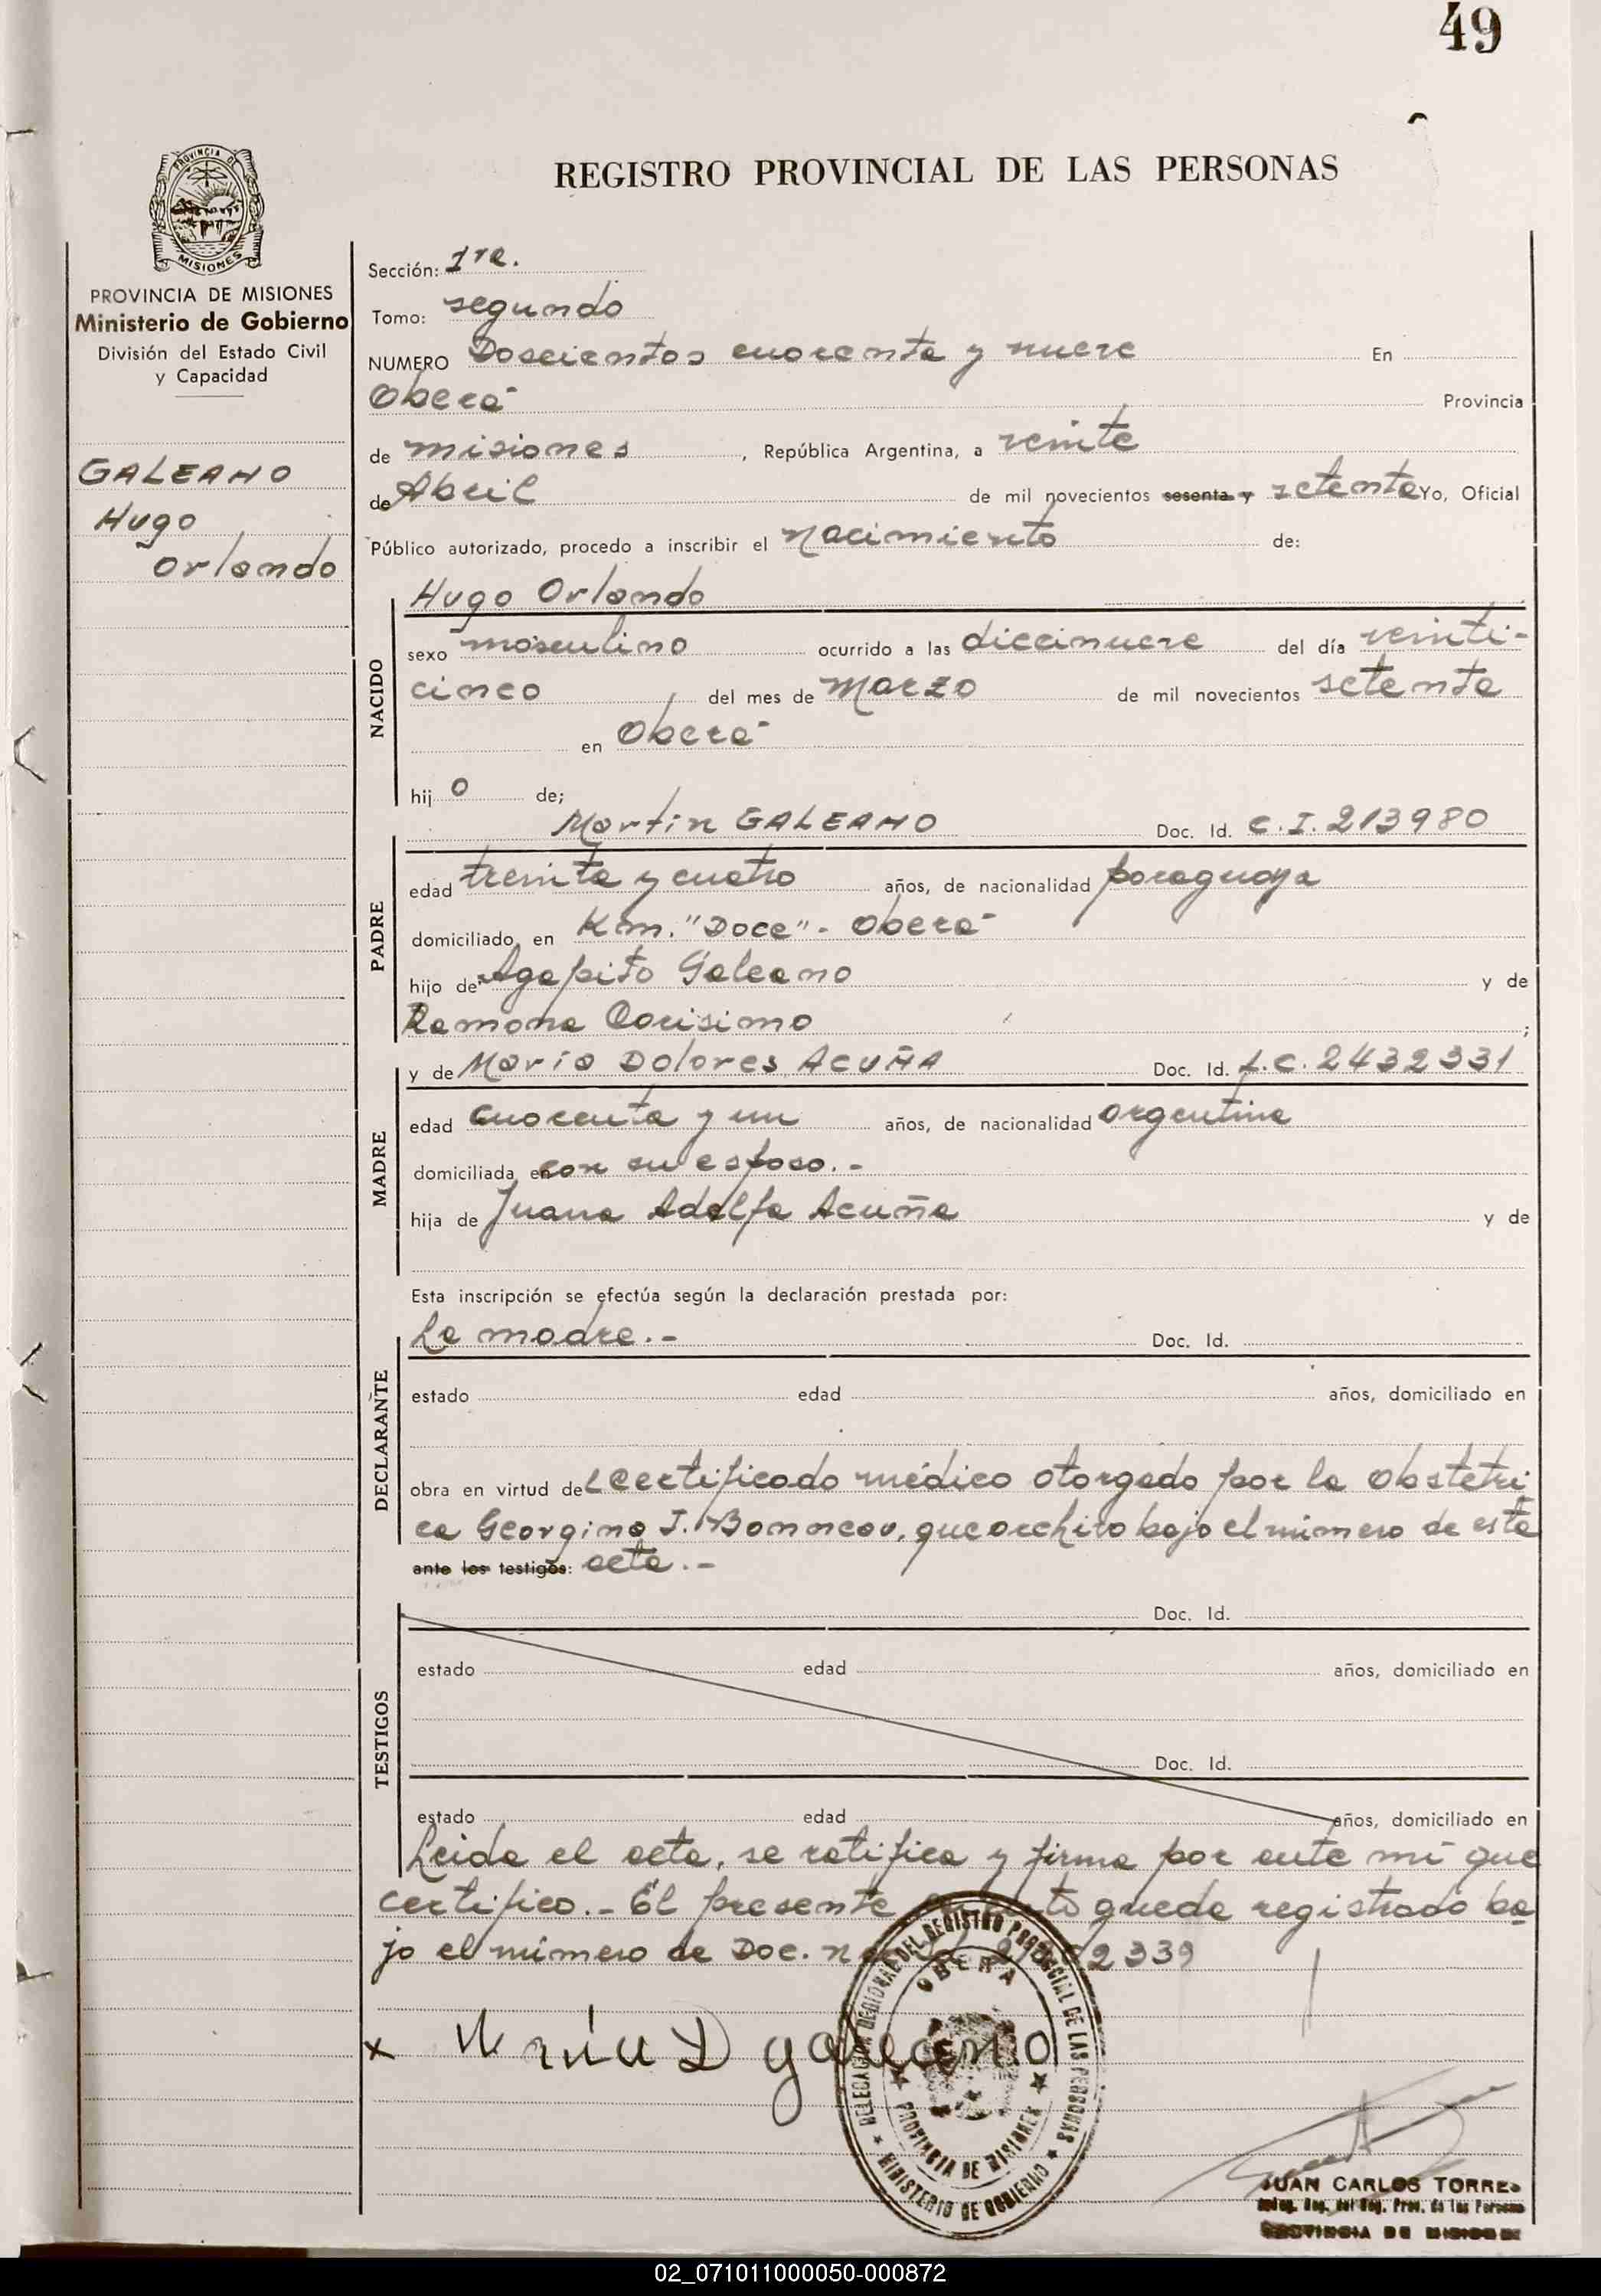 49
PROVINCIA DE
MISIONES
REGISTRO PROVINCIAL DE LAS PERSONAS
PROVINCIA DE MISIONES
Ministerio de Gobierno
División del Estado Civil
y Capacidad
GALEANO
Hugo
Orlando
Sección: 1ra.
Tomo: segundo
NUMERO Doscientos cuarenta y nueve En
Oberá Provincia
de misiones, República Argentina, a veinte
de Abril de mil novecientos sesenta y setenta Yo, Oficial
Público autorizado, procedo a inscribir el nacimiento de:
Hugo Orlando
NACIDO
sexo masculino ocurrido a las diecinueve del día veinti-
cinco del mes de Marzo de mil novecientos setenta
en Oberá
hij o de;
Martín GALEANO Doc. Id. C.I. 213980
PADRE
edad treinta y cuatro años, de nacionalidad paraguaya
domiciliado en Km. "Doce" - Oberá
hijo de Agapito Galeano y de
Ramona Carisimo ;
y de María Dolores ACUÑA Doc. Id. L.C. 2432331
MADRE
edad cuarenta y un años, de nacionalidad argentina
domiciliada en con su esposo.-
hija de Juana Adolfa Acuña y de
Esta inscripción se efectúa según la declaración prestada por:
La madre.- Doc. Id.
DECLARANTE
estado edad años, domiciliado en
obra en virtud del certificado médico otorgado por la obstetri
ca Georgina J. Bonneau, que archivo bajo el número de esta
ante los testigos: acta.-
TESTIGOS
Doc. Id.
estado edad años, domiciliado en
Doc. Id.
estado edad años, domiciliado en
Leida el acta, se ratifica y firma por ante mí que
certifico.- El presente queda registrado ba
jo el número de Doc. 2339
x María D galeano
DELEGACION REGIONAL DEL REGISTRO PROVINCIAL DE LAS PERSONAS
OBERA
PROVINCIA DE MISIONES
MINISTERIO DE GOBIERNO
JUAN CARLOS TORRES
Deleg. Reg. del Reg. Prov. de las Personas
PROVINCIA DE MISIONES
02_071011000050-000872